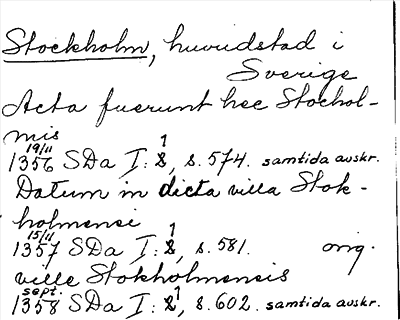 Stockholm, huvudstad i
Sverige
Acta fuerunt hec Stockhol-
mis
19/11
1356 SDa I: 1, s. 574. samtida avskr.
Datum in dicta villa Stok-
holmensi
15/11
1357 SDa I: 1, s. 581. orig.
ville Stokholmensis
sept.
1358 SDa I: 1, s. 602. samtida avskr.